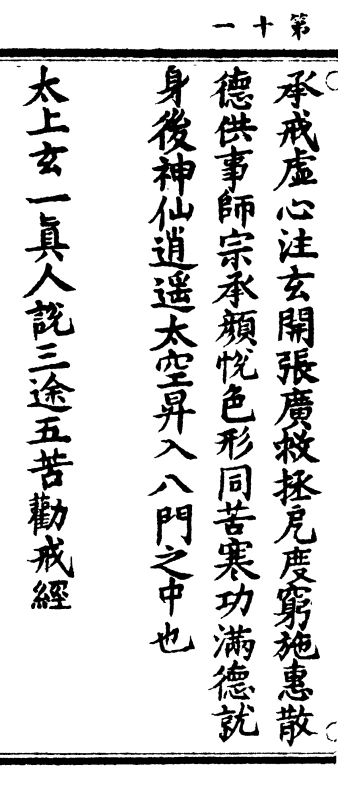 第十一
承戒虛心注玄開張廣救拯危度窮施惠散
德供事師宗承顏悅色形同苦寒功滿德就
身後神仙逍遥太空昇入八門之中也
太上玄一眞人說三途五苦勸戒經